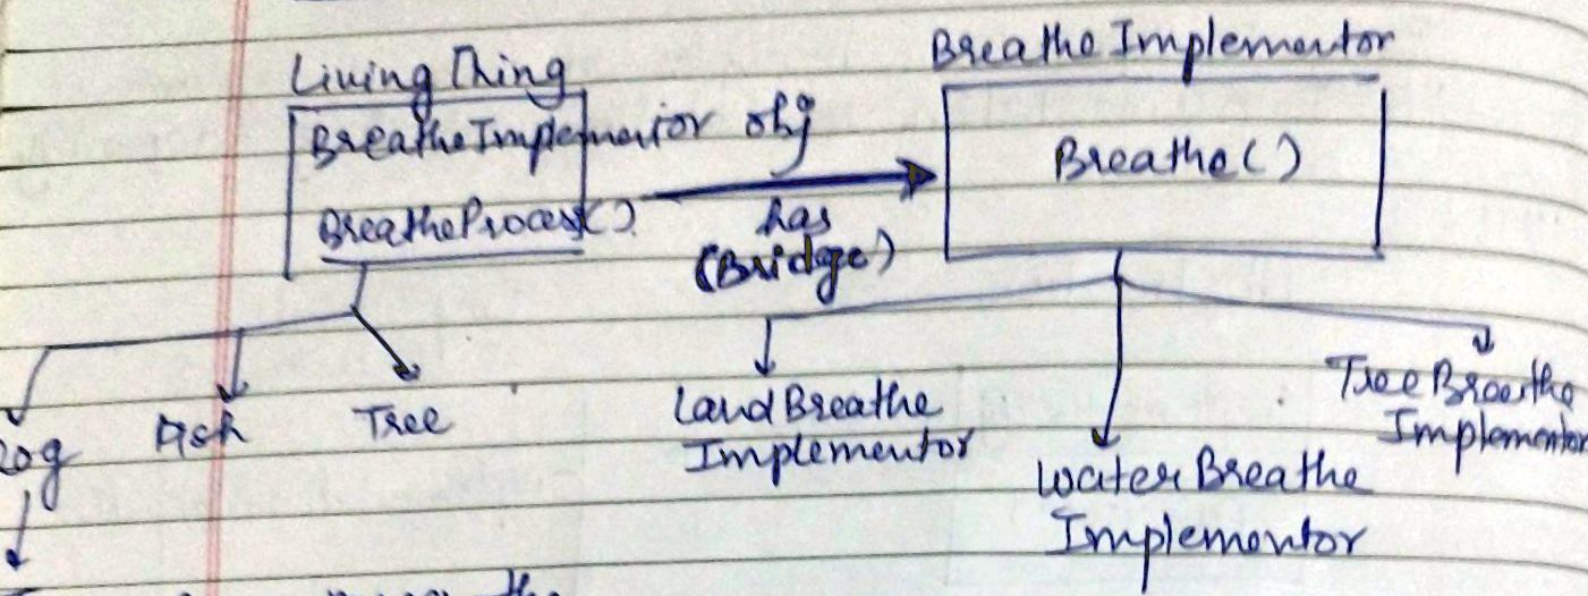 Living Thing
BreatheImplementor obj
BreatheProcess()
has
(Bridge)
BreatheImplementor
Breathe()
Fish
Tree
LandBreathe
Implementor
WaterBreathe
Implementor
TreeBreathe
Implementor